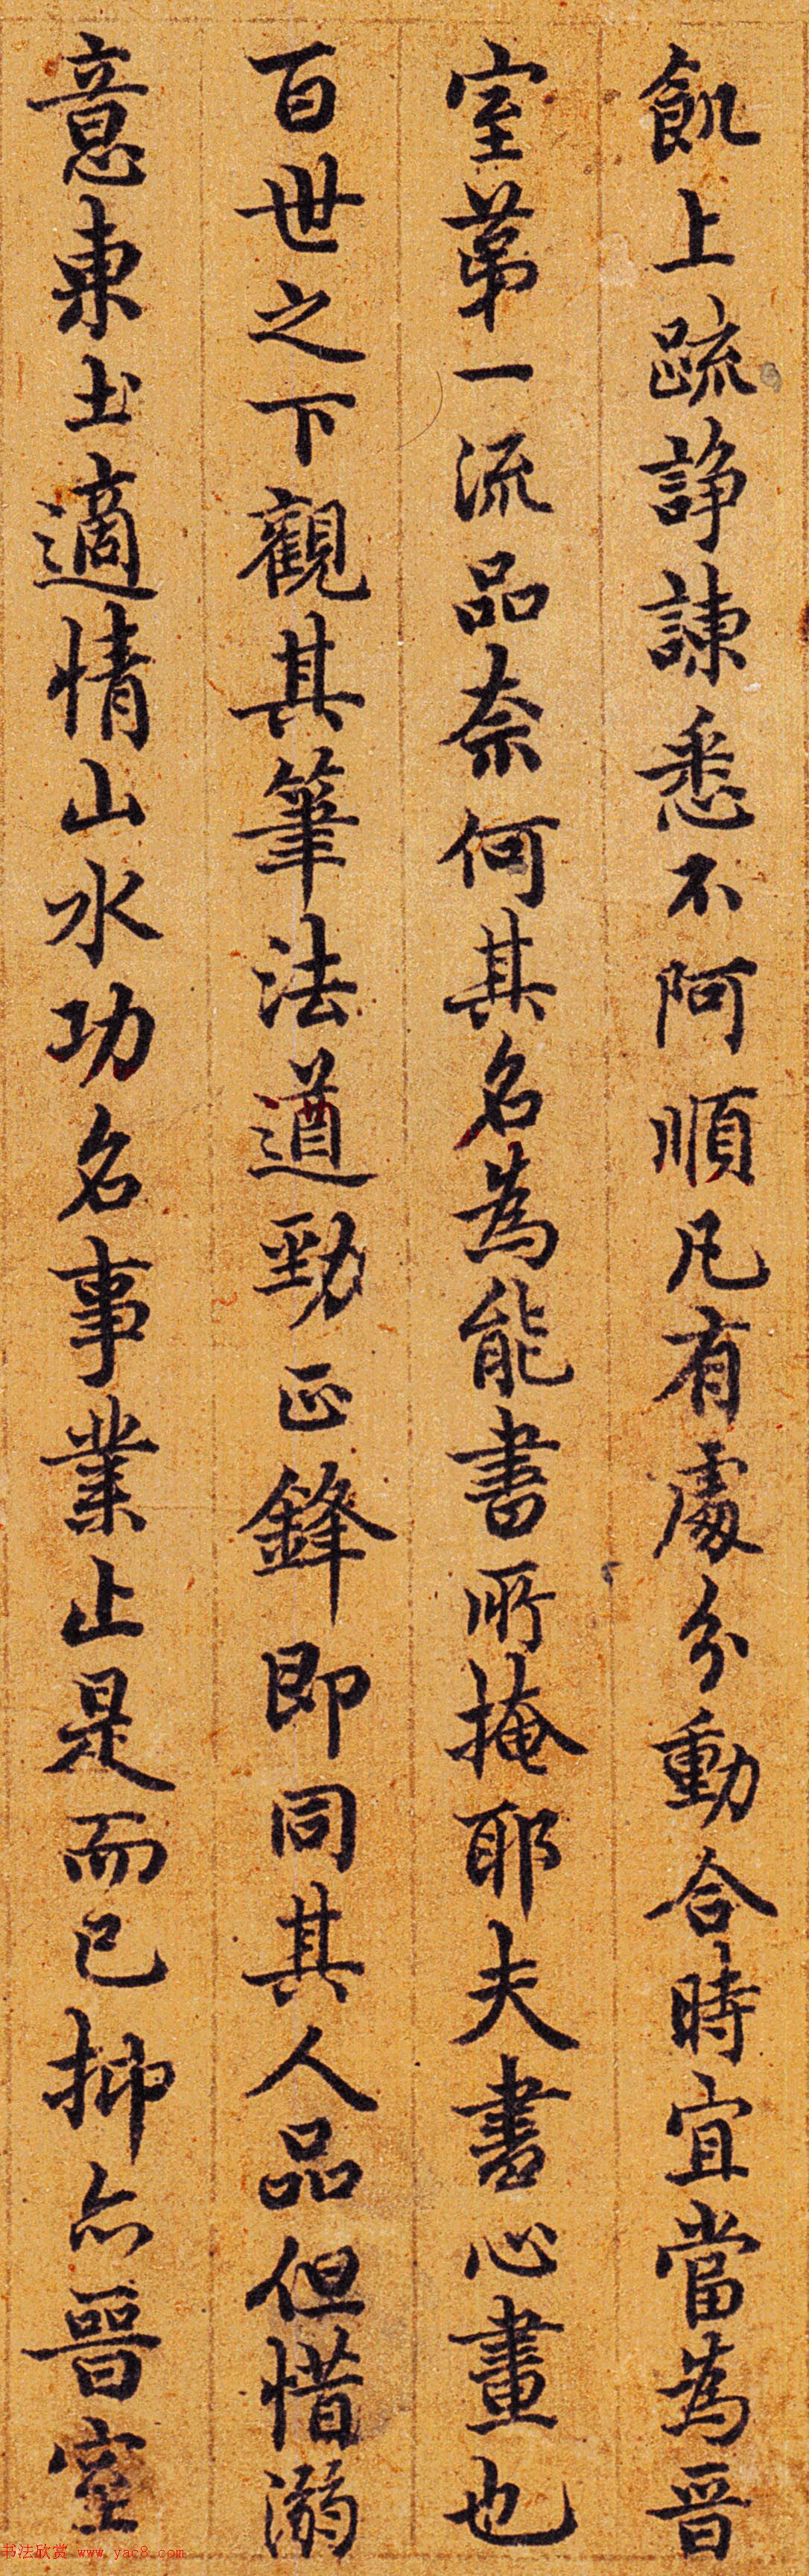 飢上疏諍諫悉不阿順凡有處分動合時宜當為晉
室苐一流品奈何其名為能書所掩耶夫書心畫也
百世之下觀其筆法遒勁正鋒即同其人品但惜溺
意東土適情山水功名事業止是而已抑亦晉室
书法欣赏 www.yac8.com